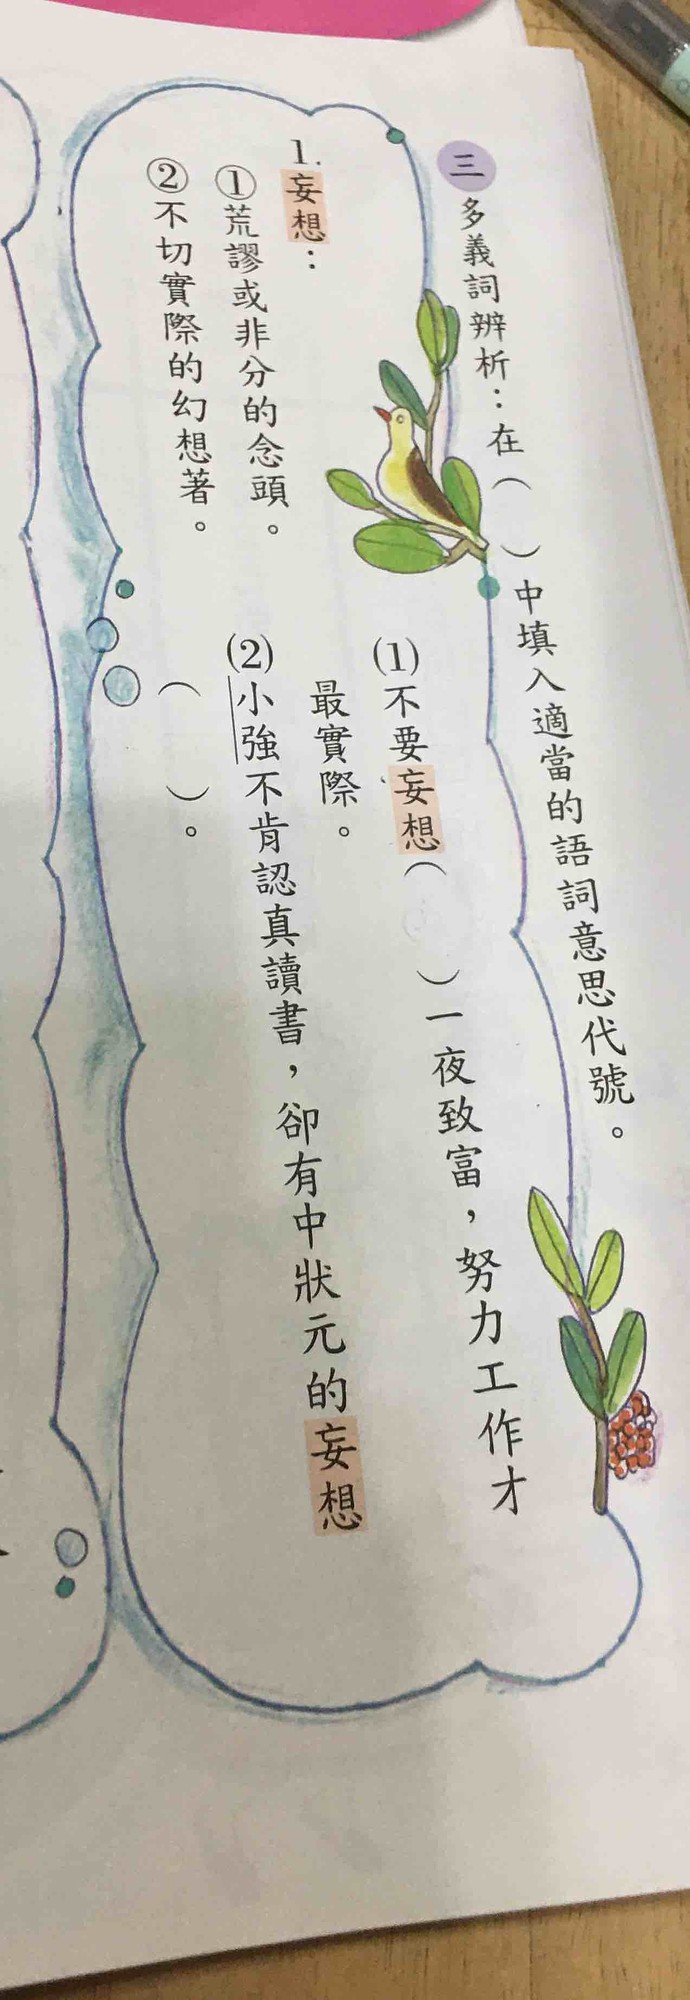 三 多義詞辨析：在（ ）中填入適當的語詞意思代號。
1. 妄想：
①荒謬或非分的念頭。
②不切實際的幻想著。
(1)不要妄想（ ）一夜致富，努力工作才
最實際。
(2)小強不肯認真讀書，卻有中狀元的妄想
（ ）。